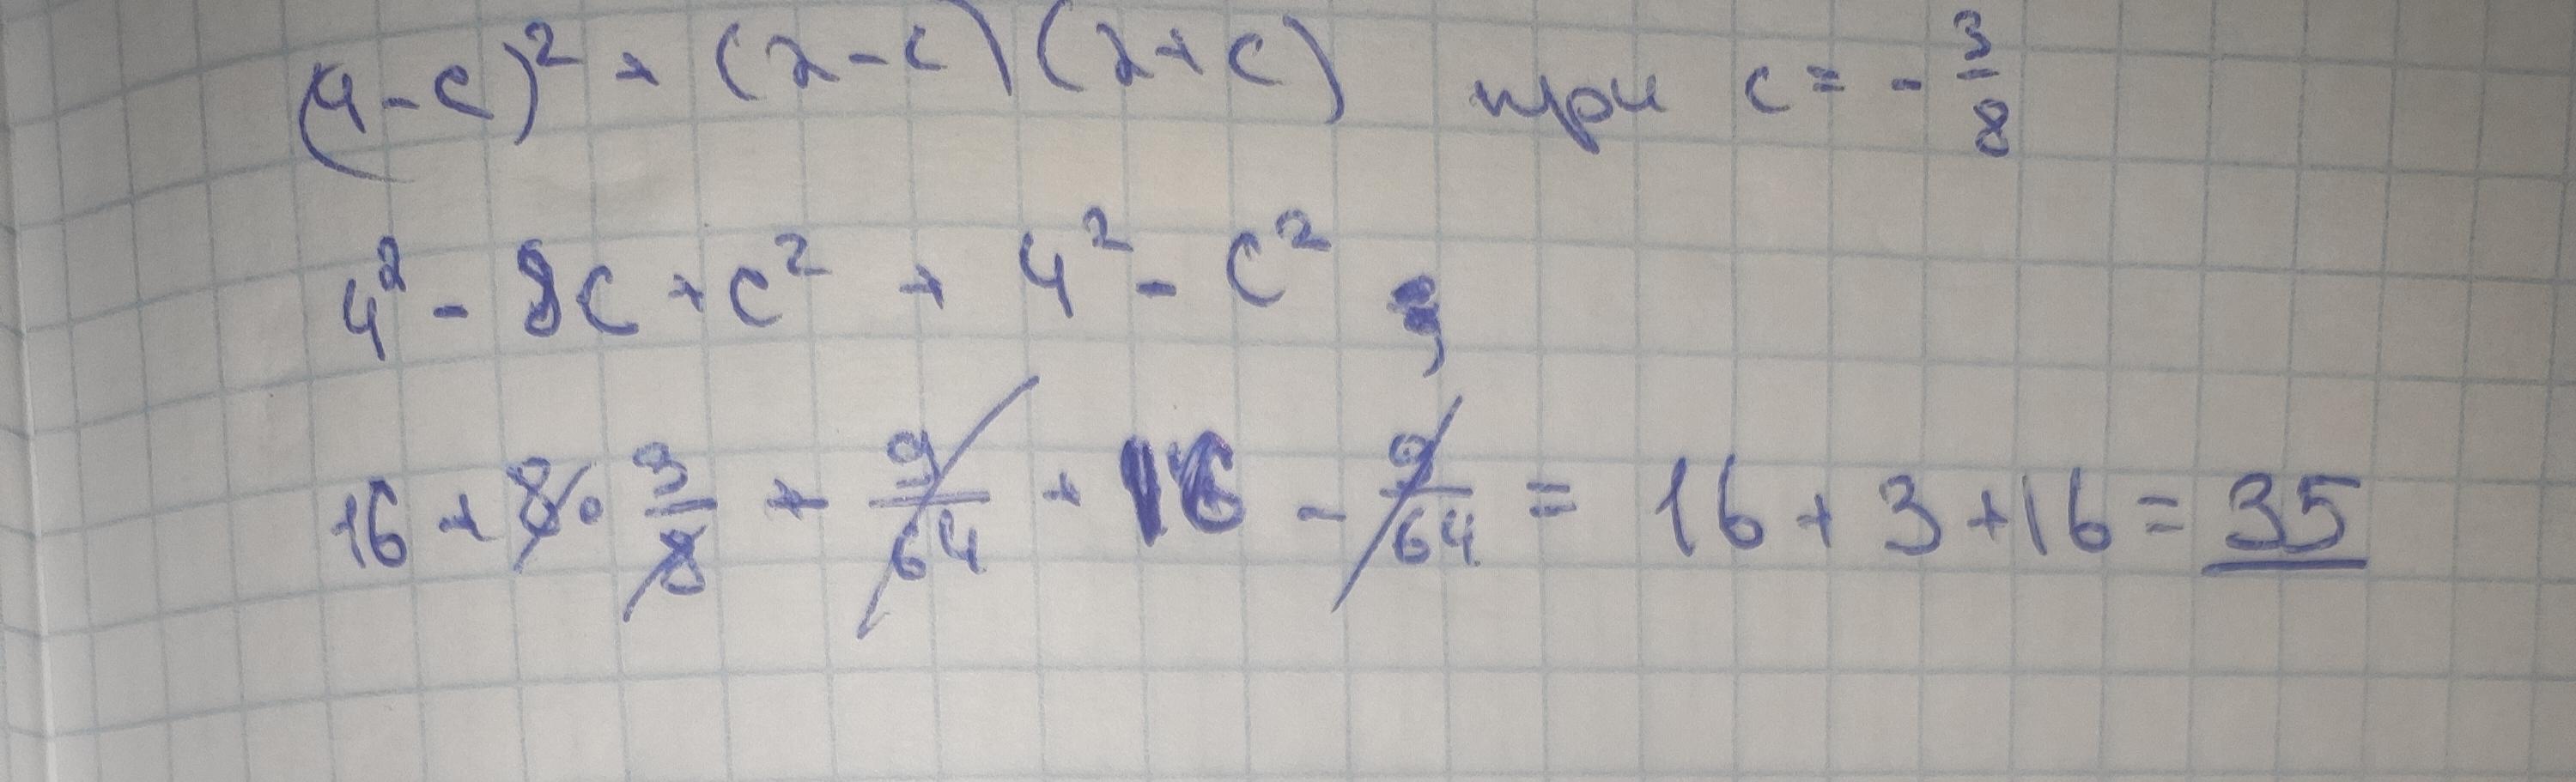 (4-c)² + (2-c)(2+c) при c = -3/8
4² - 8c + c² + 4² - c² ;
16 + 8 · 3/8 + 9/64 + 16 - 9/64 = 16 + 3 + 16 = 35